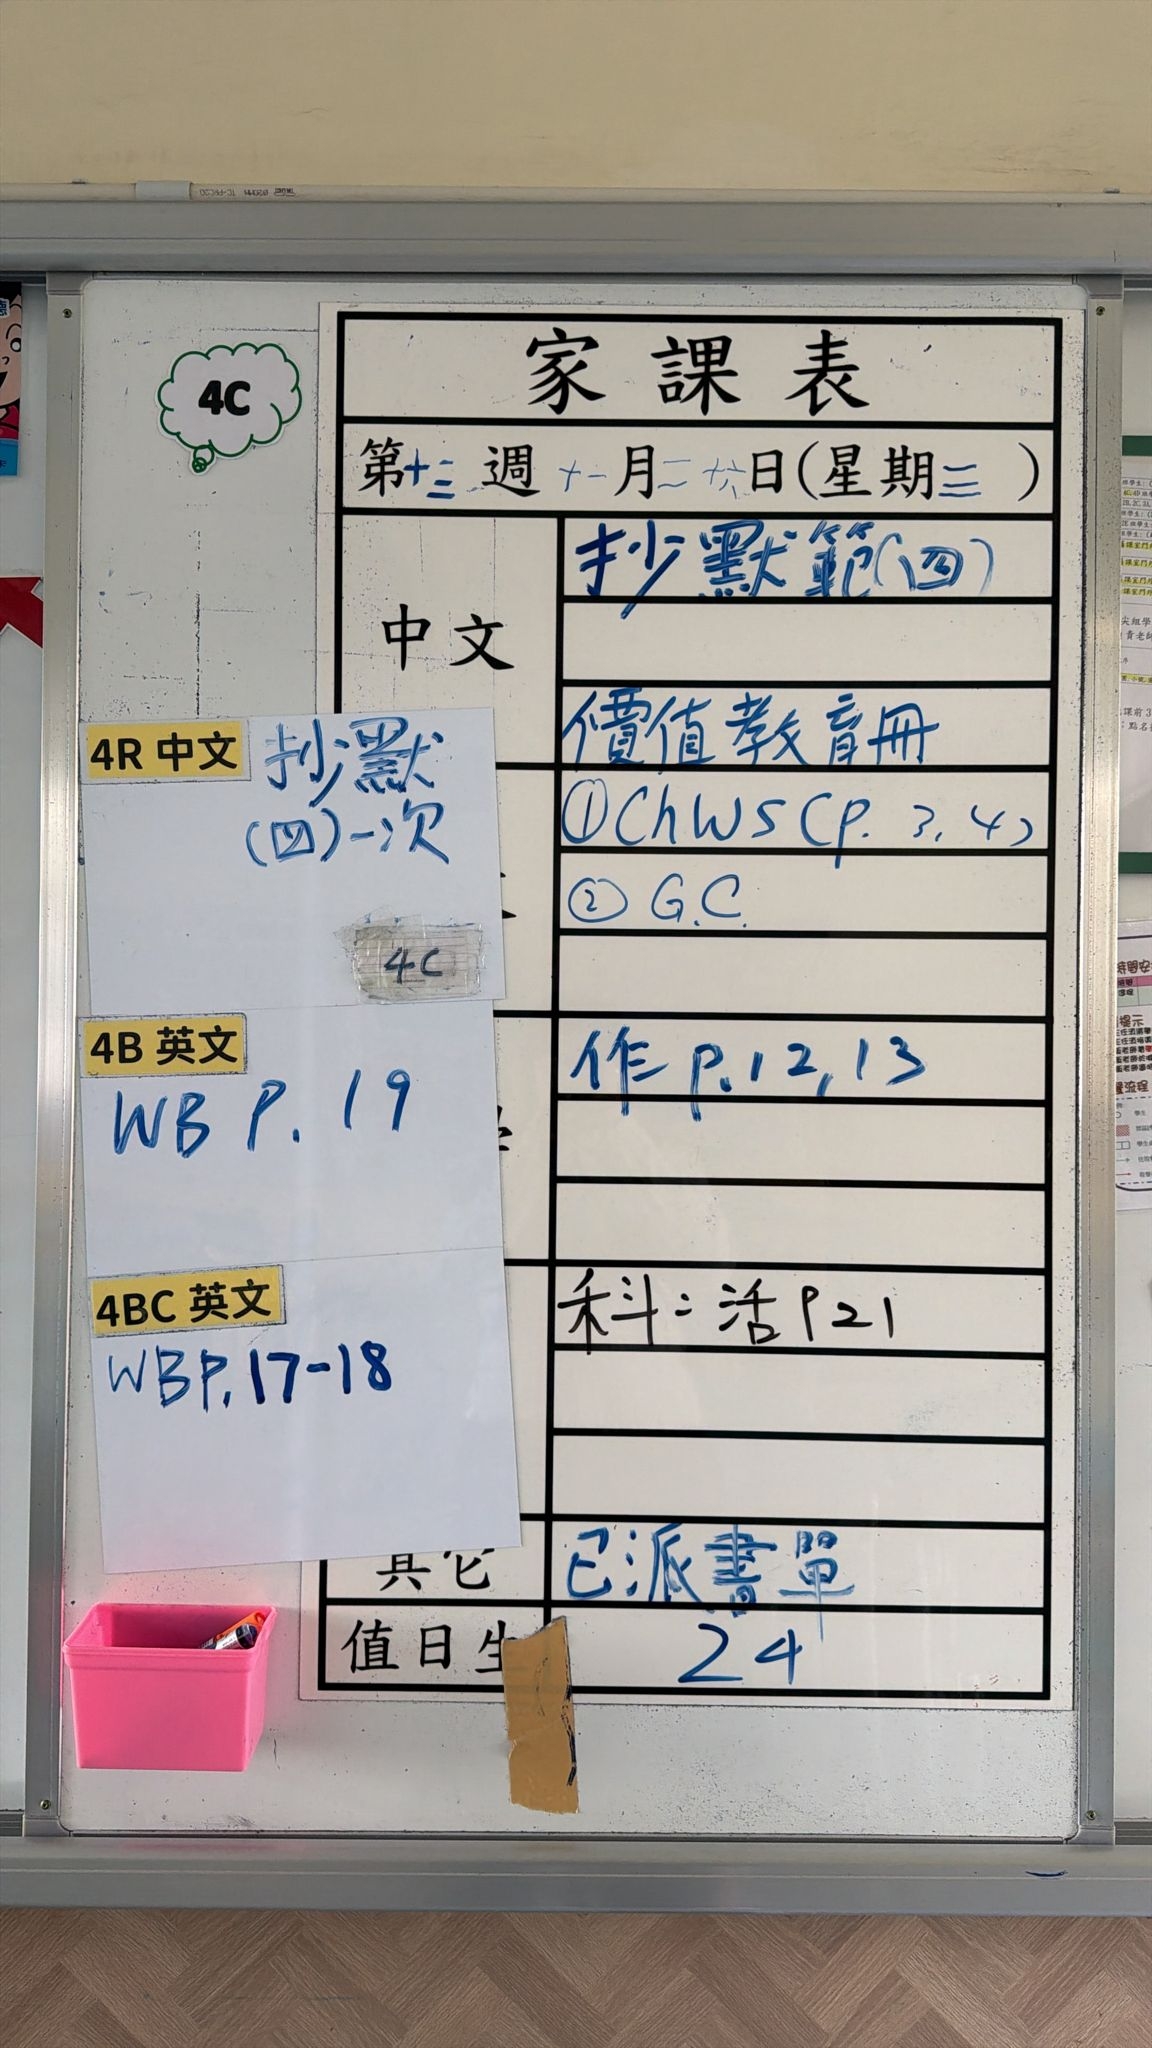 家課表
4C
第十三週 十一月二十六日(星期三)
中文
抄默範(四)
價值教育冊
①ChWS(p.3,4)
② G.C.
作 p.12,13
科：活P21
其它
已派書單
值日生
24
4R 中文
抄默
(四)一次
4C
4B 英文
WB P.19
4BC 英文
WBP.17-18